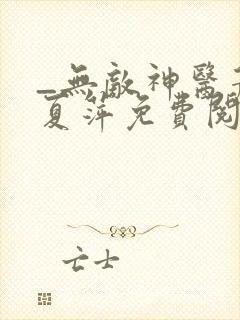 _無敵神醫
夏萍免費閱
亡士